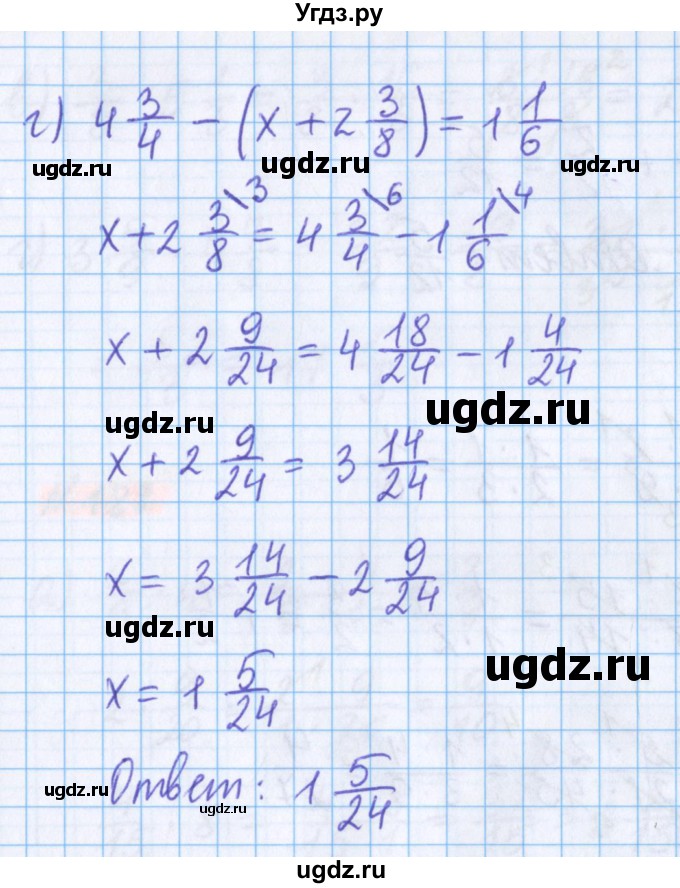 Угдз.ру
г) 4 3/4 - (x + 2 3/8) = 1 1/6
ugdz.ru ugdz.ru ugdz.ru
x + 2 3/8 \3 = 4 3/4 \6 - 1 1/6 \4
x + 2 9/24 = 4 18/24 - 1 4/24
ugdz.ru ugdz.ru
x + 2 9/24 = 3 14/24
x = 3 14/24 - 2 9/24
ugdz.ru
ugdz.ru
x = 1 5/24
Ответ: 1 5/24
ugdz.ru ugdz.ru
ugdz.ru